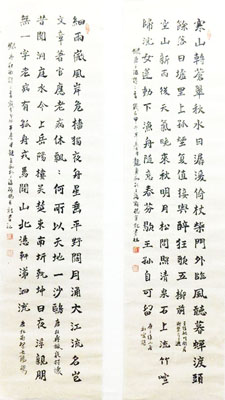 寒山轉蒼翠秋水日潺湲倚杖柴門外臨風聽暮蟬渡頭
餘落日墟里上孤煙復值接輿醉狂歌五柳前
空山新雨後天氣晚來秋明月松間照清泉石上流竹喧
歸浣女蓮動下漁舟隨意春芳歇王孫自可留
細草微風岸危檣獨夜舟星垂平野闊月涌大江流名豈
文章著官應老病休飄飄何所以天地一沙鷗 唐杜甫旅夜書懷
昔聞洞庭水今上岳陽樓吳楚東南坼乾坤日夜浮親朋
無一字老病有孤舟戎馬關山北憑軒涕泗流 唐杜甫登岳陽樓